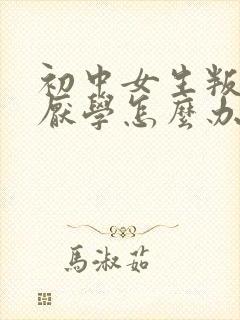 初中女生叛
厭學怎麼办
馬淑茹